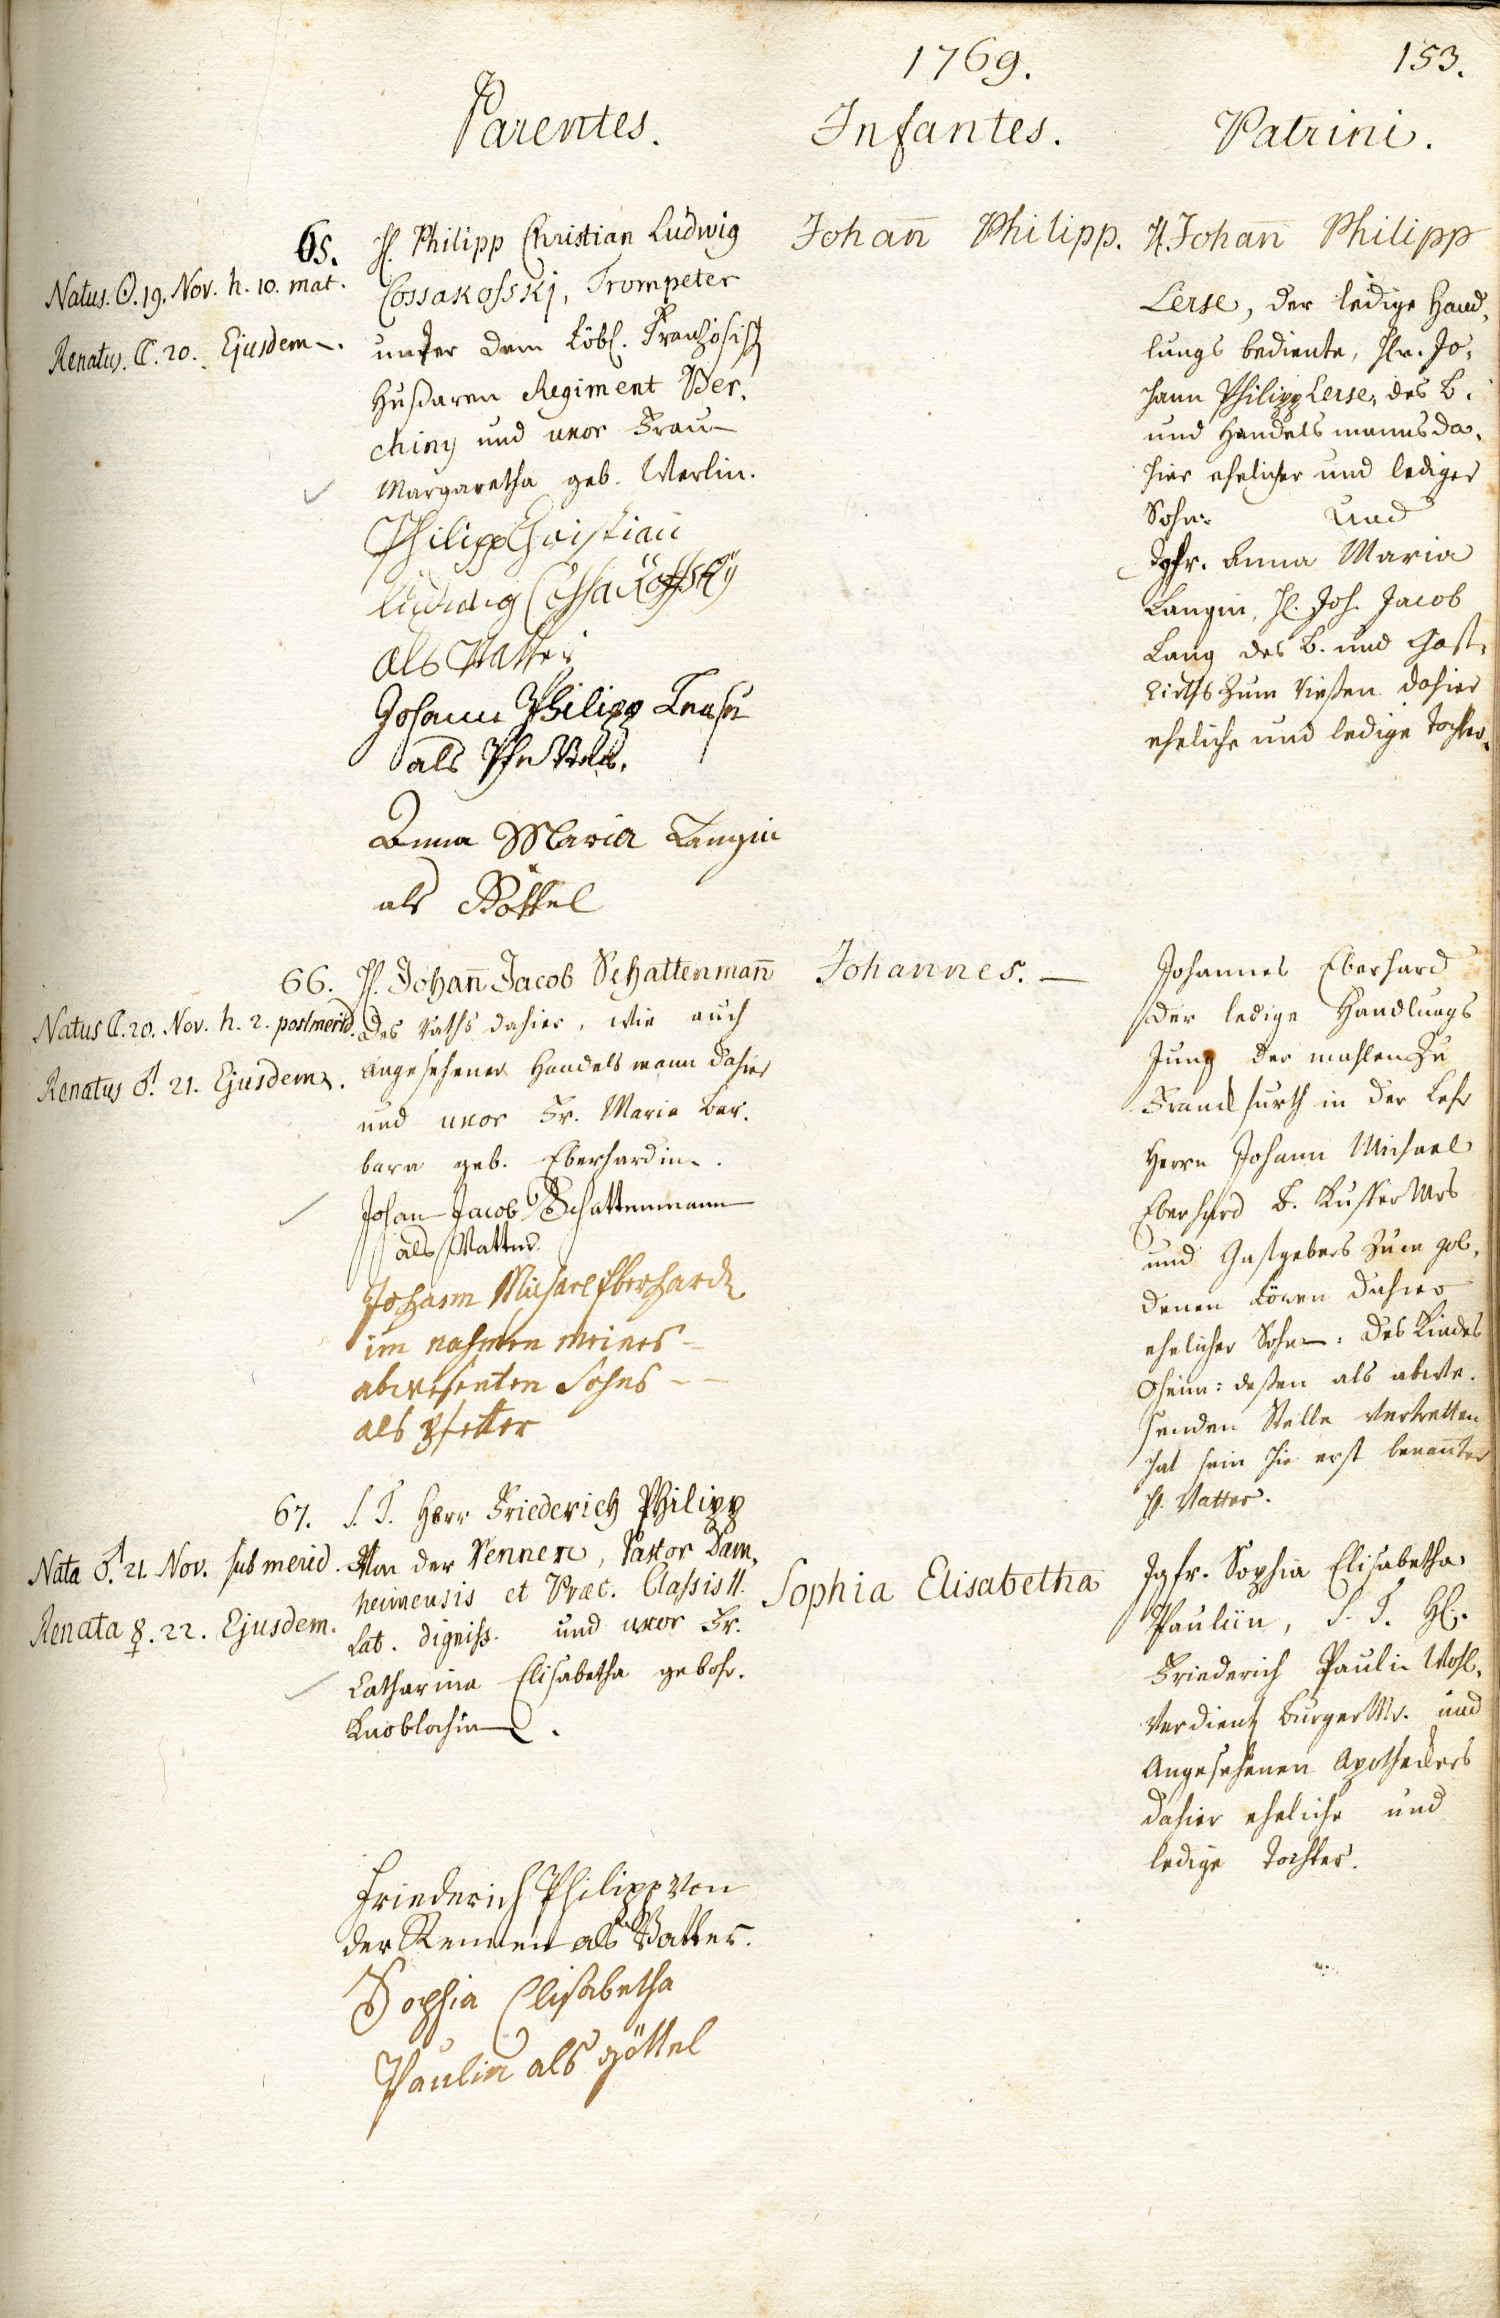 1769.
153.
Parentes.
Infantes.
Patrini.
65.
Natus. ☉. 19. Nov. h. 10. mat.
Renatus. ☾. 20. Ejusdem.
H. Philipp Christian Ludwig
Cossakofskj, Trompeter
unter dem Löbl. Französisch
Husaren Regiment Ber,
chiny und uxor Frau
Margaretha geb. Werlin.
Philipp Christian
Ludwig Cossakoffskÿ
als Vatter
Johann Philipp Lerse
als
Anna Maria Langin
als Göttel
Johan̄ Philipp.
H. Johan̄ Philipp
Lerse, der ledige Hand,
lungs bediente, Hr. Jo,
hann Philipp Lerse, des B.
und Handelsmanns da,
hier ehelicher und lediger
Sohn. Und
Jgfr. Anna Maria
Langin, H. Joh. Jacob
Lang des B. und Gast,
wirths zum Riesen dahier
eheliche und ledige Tochter.
66.
Natus ☾. 20. Nov. h. 2. postmerid.
Renatus ♂. 21. Ejusdem.
H. Johan̄ Jacob Schattenman̄
des Raths dahier, wie auch
angesehener Handelsmann dahier
und uxor Fr. Maria Bar,
bara geb. Eberhardin.
Johan Jacob Schattenmann
als Vatter
Johann Michael Eberhardt
im nahmen meines
abwesenten Sohns
als pfetter
Johannes.
Johannes Eberhard
der ledige Handlungs
Jung der mahlen zu
Franckfurth in der Lehr
Herrn Johann Michael
Eberhard B. Küffer Mrs
und Gastgebers zum gol,
denen Löwen dahier
ehelicher Sohn: des Kindes
Oheim: deßen als abwe,
senden Stelle vertretten
hat sein hie erst benan̄ter
H. Vatter.
67.
Nata ♂. 21. Nov. sub merid.
Renata ☿. 22. Ejusdem.
S. T. Herr Friederich Philipp
Von der Rennen, Pastor Dam,
heimensis et Præc. Classis II.
Lat. digniss. und uxor Fr.
Catharina Elisabetha gebohr.
Knoblochin.
Friederich Philipp von
der Rennen als Vatter.
Sophia Elisabetha
Paulin als göttel
Sophia Elisabetha
Jgfr. Sophia Elisabetha
Paulin, S. T. H.
Friederich Pauli Wohl,
verdient BurgerMr. und
Angesehenen Apotheckers
dahier eheliche und
ledige Tochter.